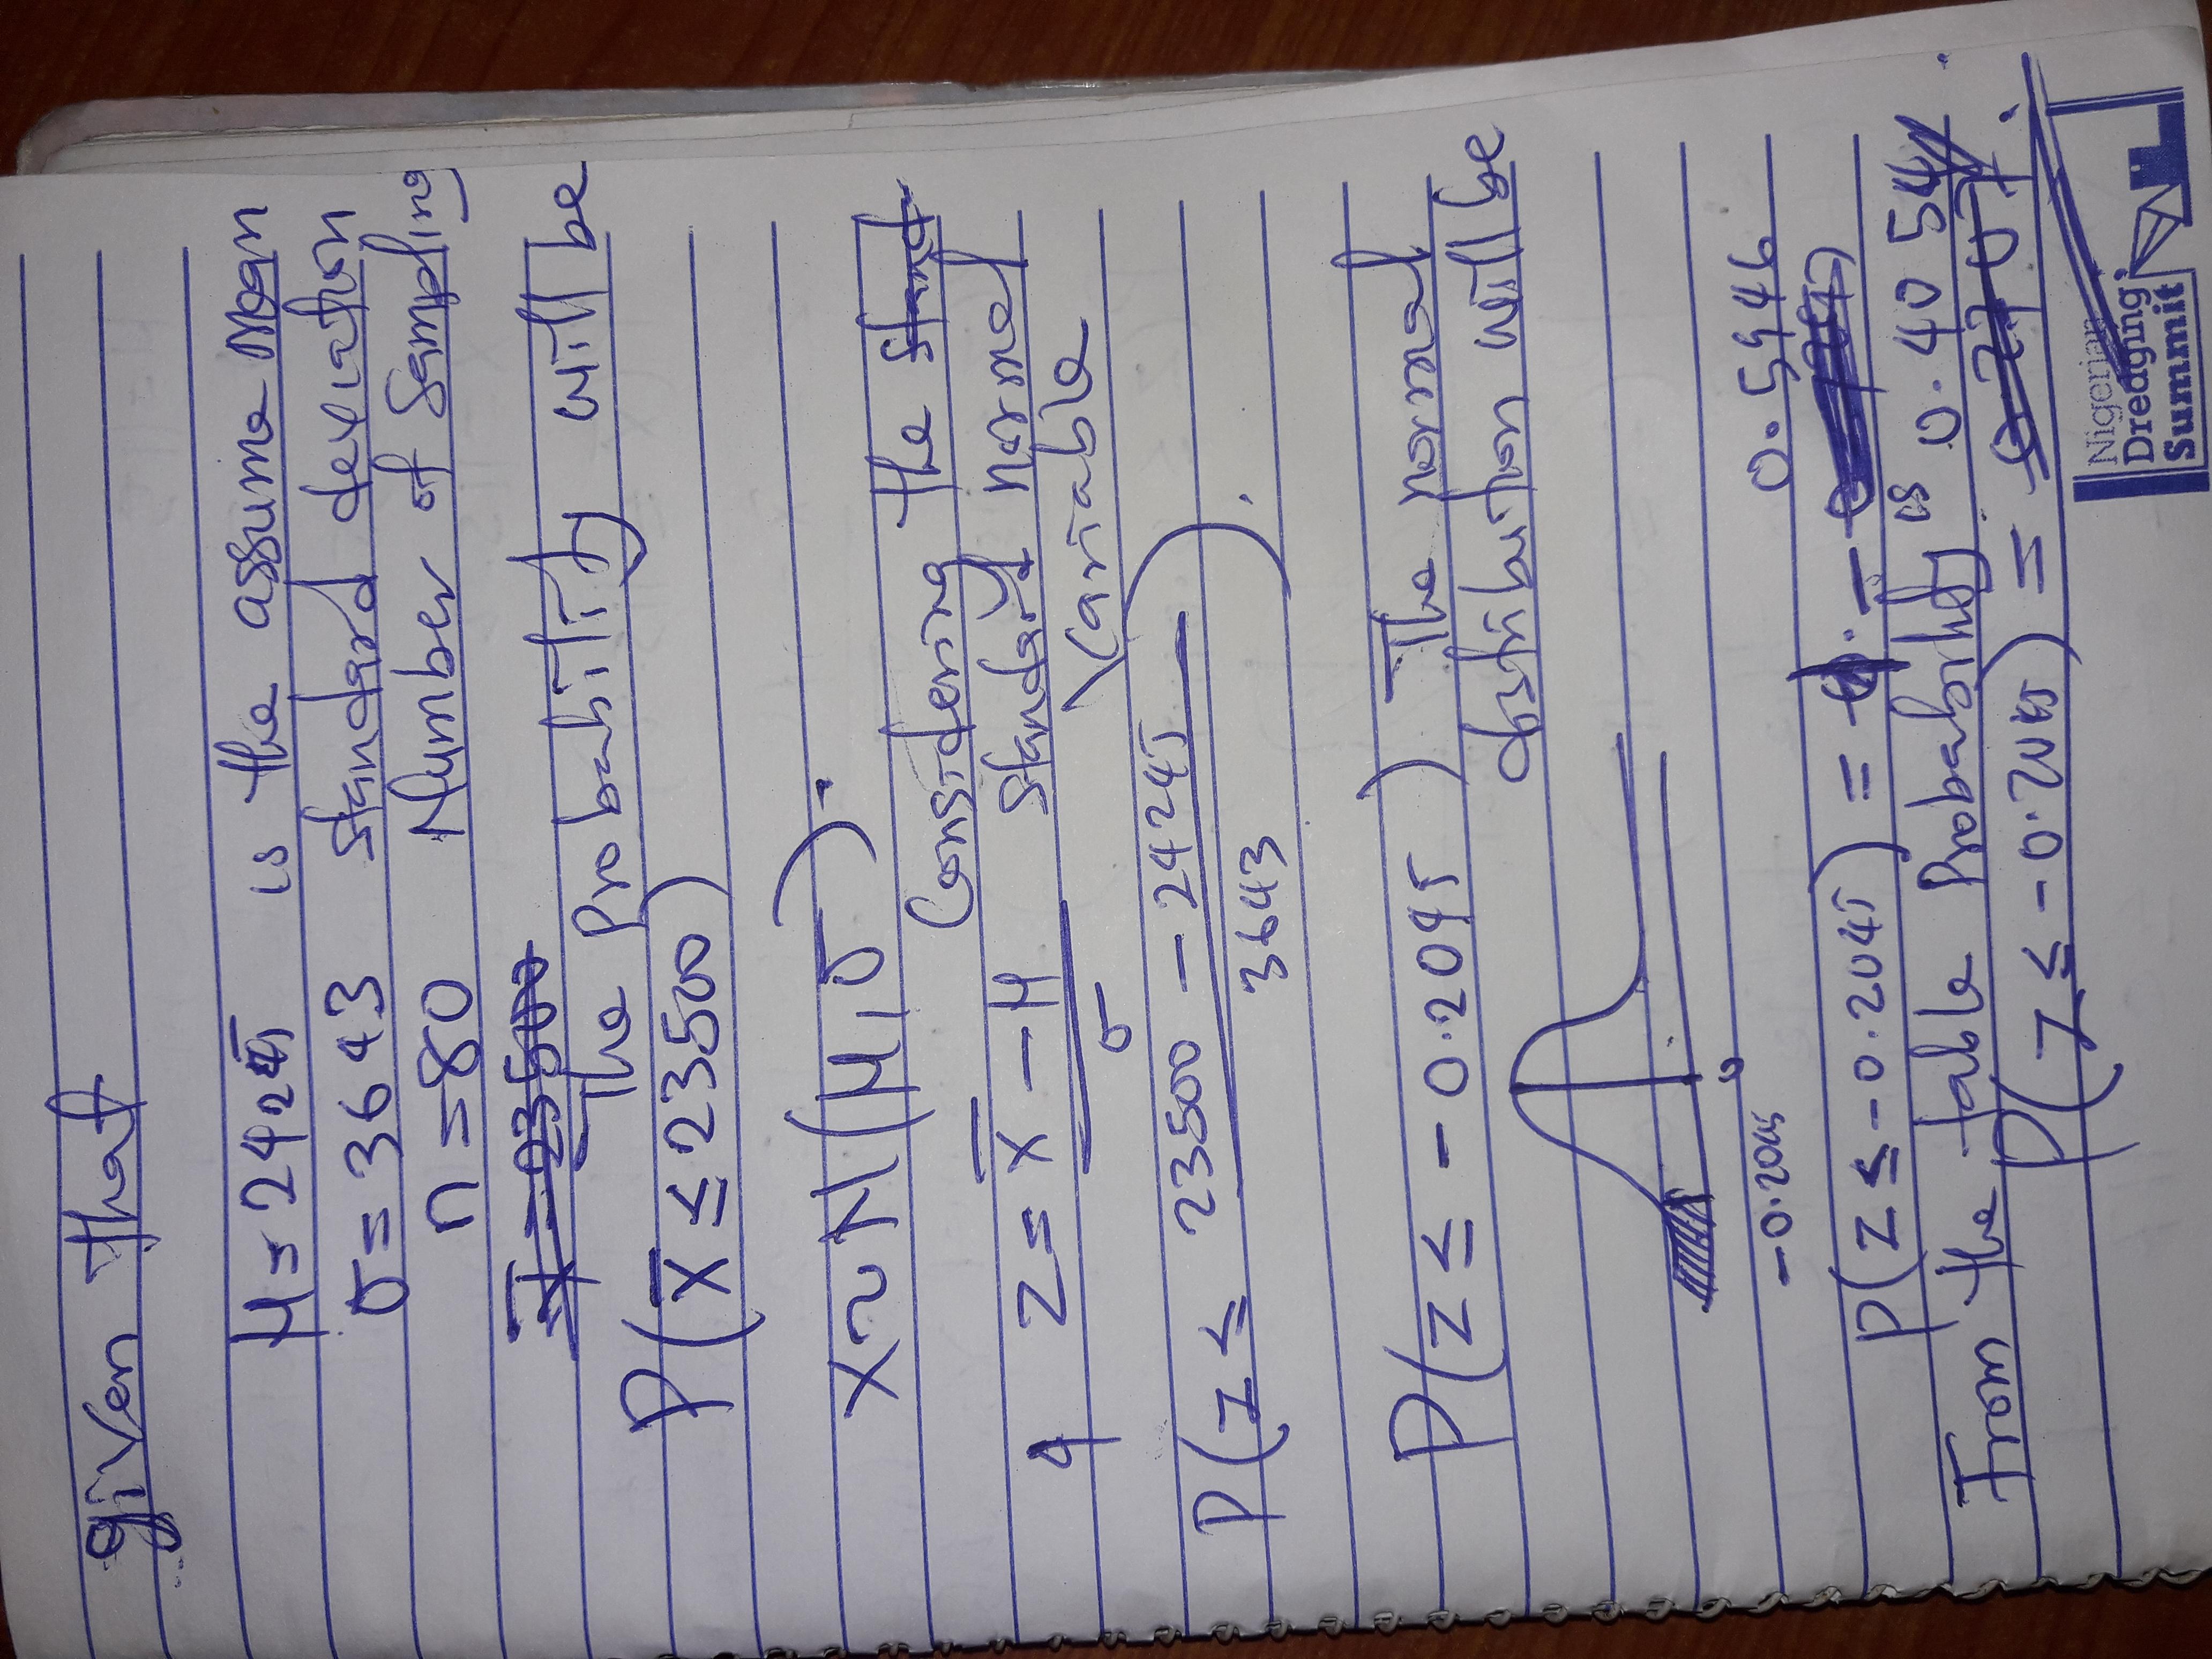 given that
μ = 24245 is the assume mean
σ = 3643 standard deviation
n = 80 Number of sampling
x̄ = 23500
The probability will be
P(x̄ ≤ 23500)
X ~ N(μ, σ).
Considering the stand
z = x̄ - μ standard normal
σ variable
P(z ≤ 23500 - 24245).
3643
P(z ≤ -0.2045) The normal
distribution will be
-0.2045 0
0.5946
P(z ≤ -0.2045) =
From the table Probability is 0.4054
P(z ≤ -0.2045) =
Nigerian
Dredging
Summit